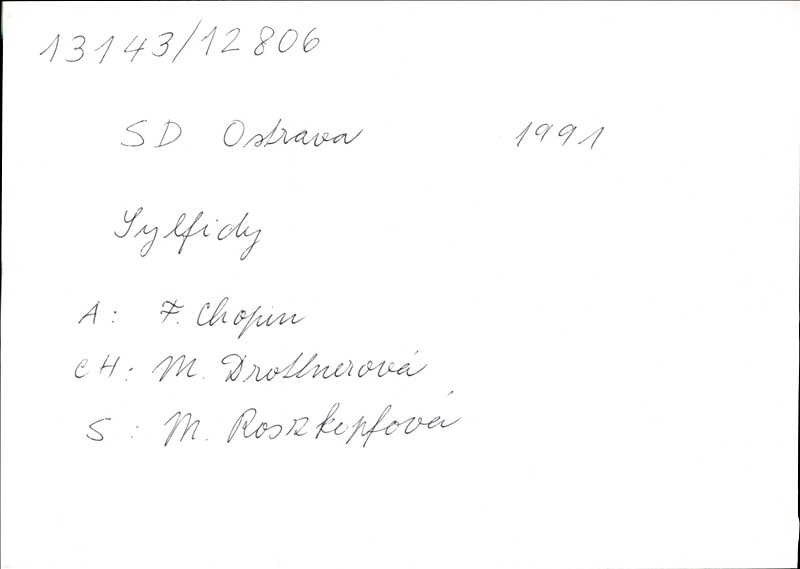 13143/12806
SD Ostrava 1991
Sylfidy
A: F. Chopin
CH: M. Drottnerová
S: M. Roszkopfová